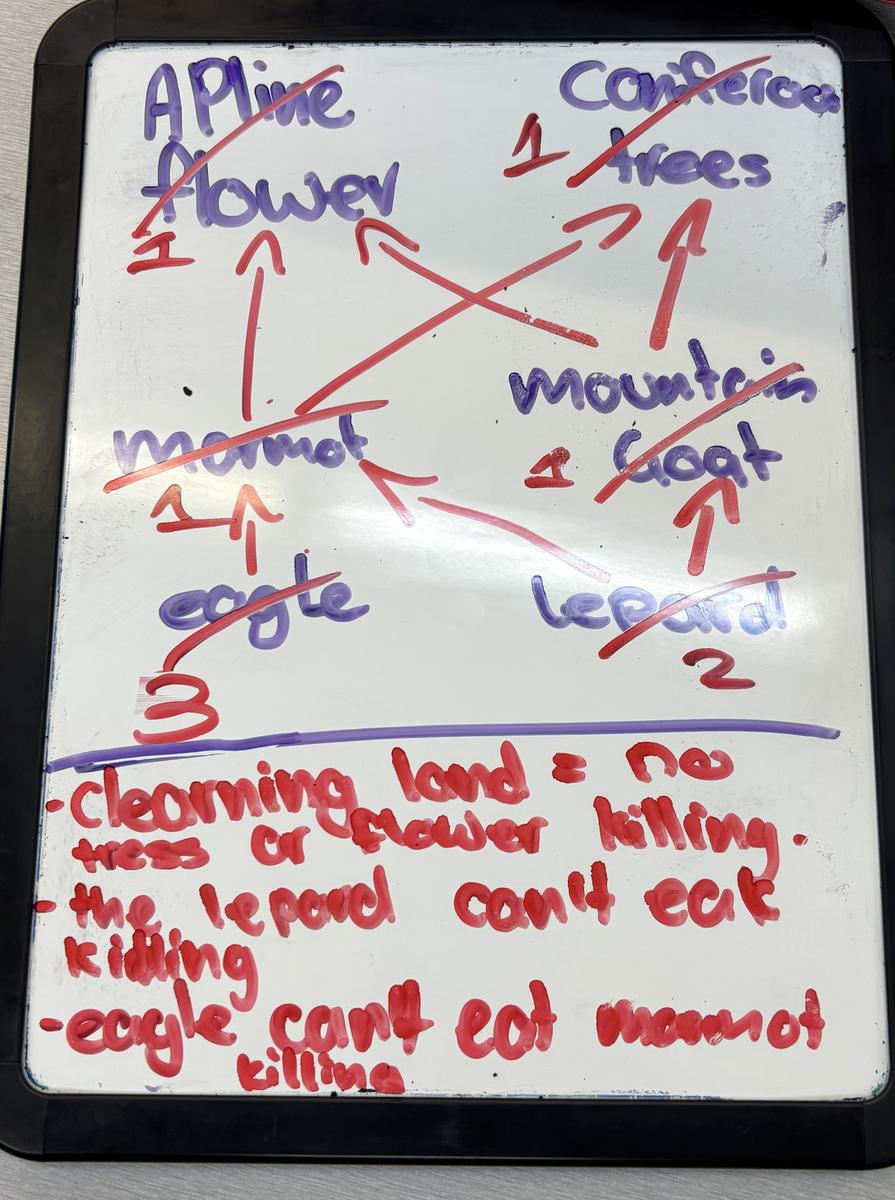 APline
flower
1
Coniferou
1 trees
marmot
1
mountain
1 Goat
eagle
3
lepard
2
• clearning land = no
tress or flower killing.
• the lepard can't eat
killing
• eagle can't eat marmot
killing